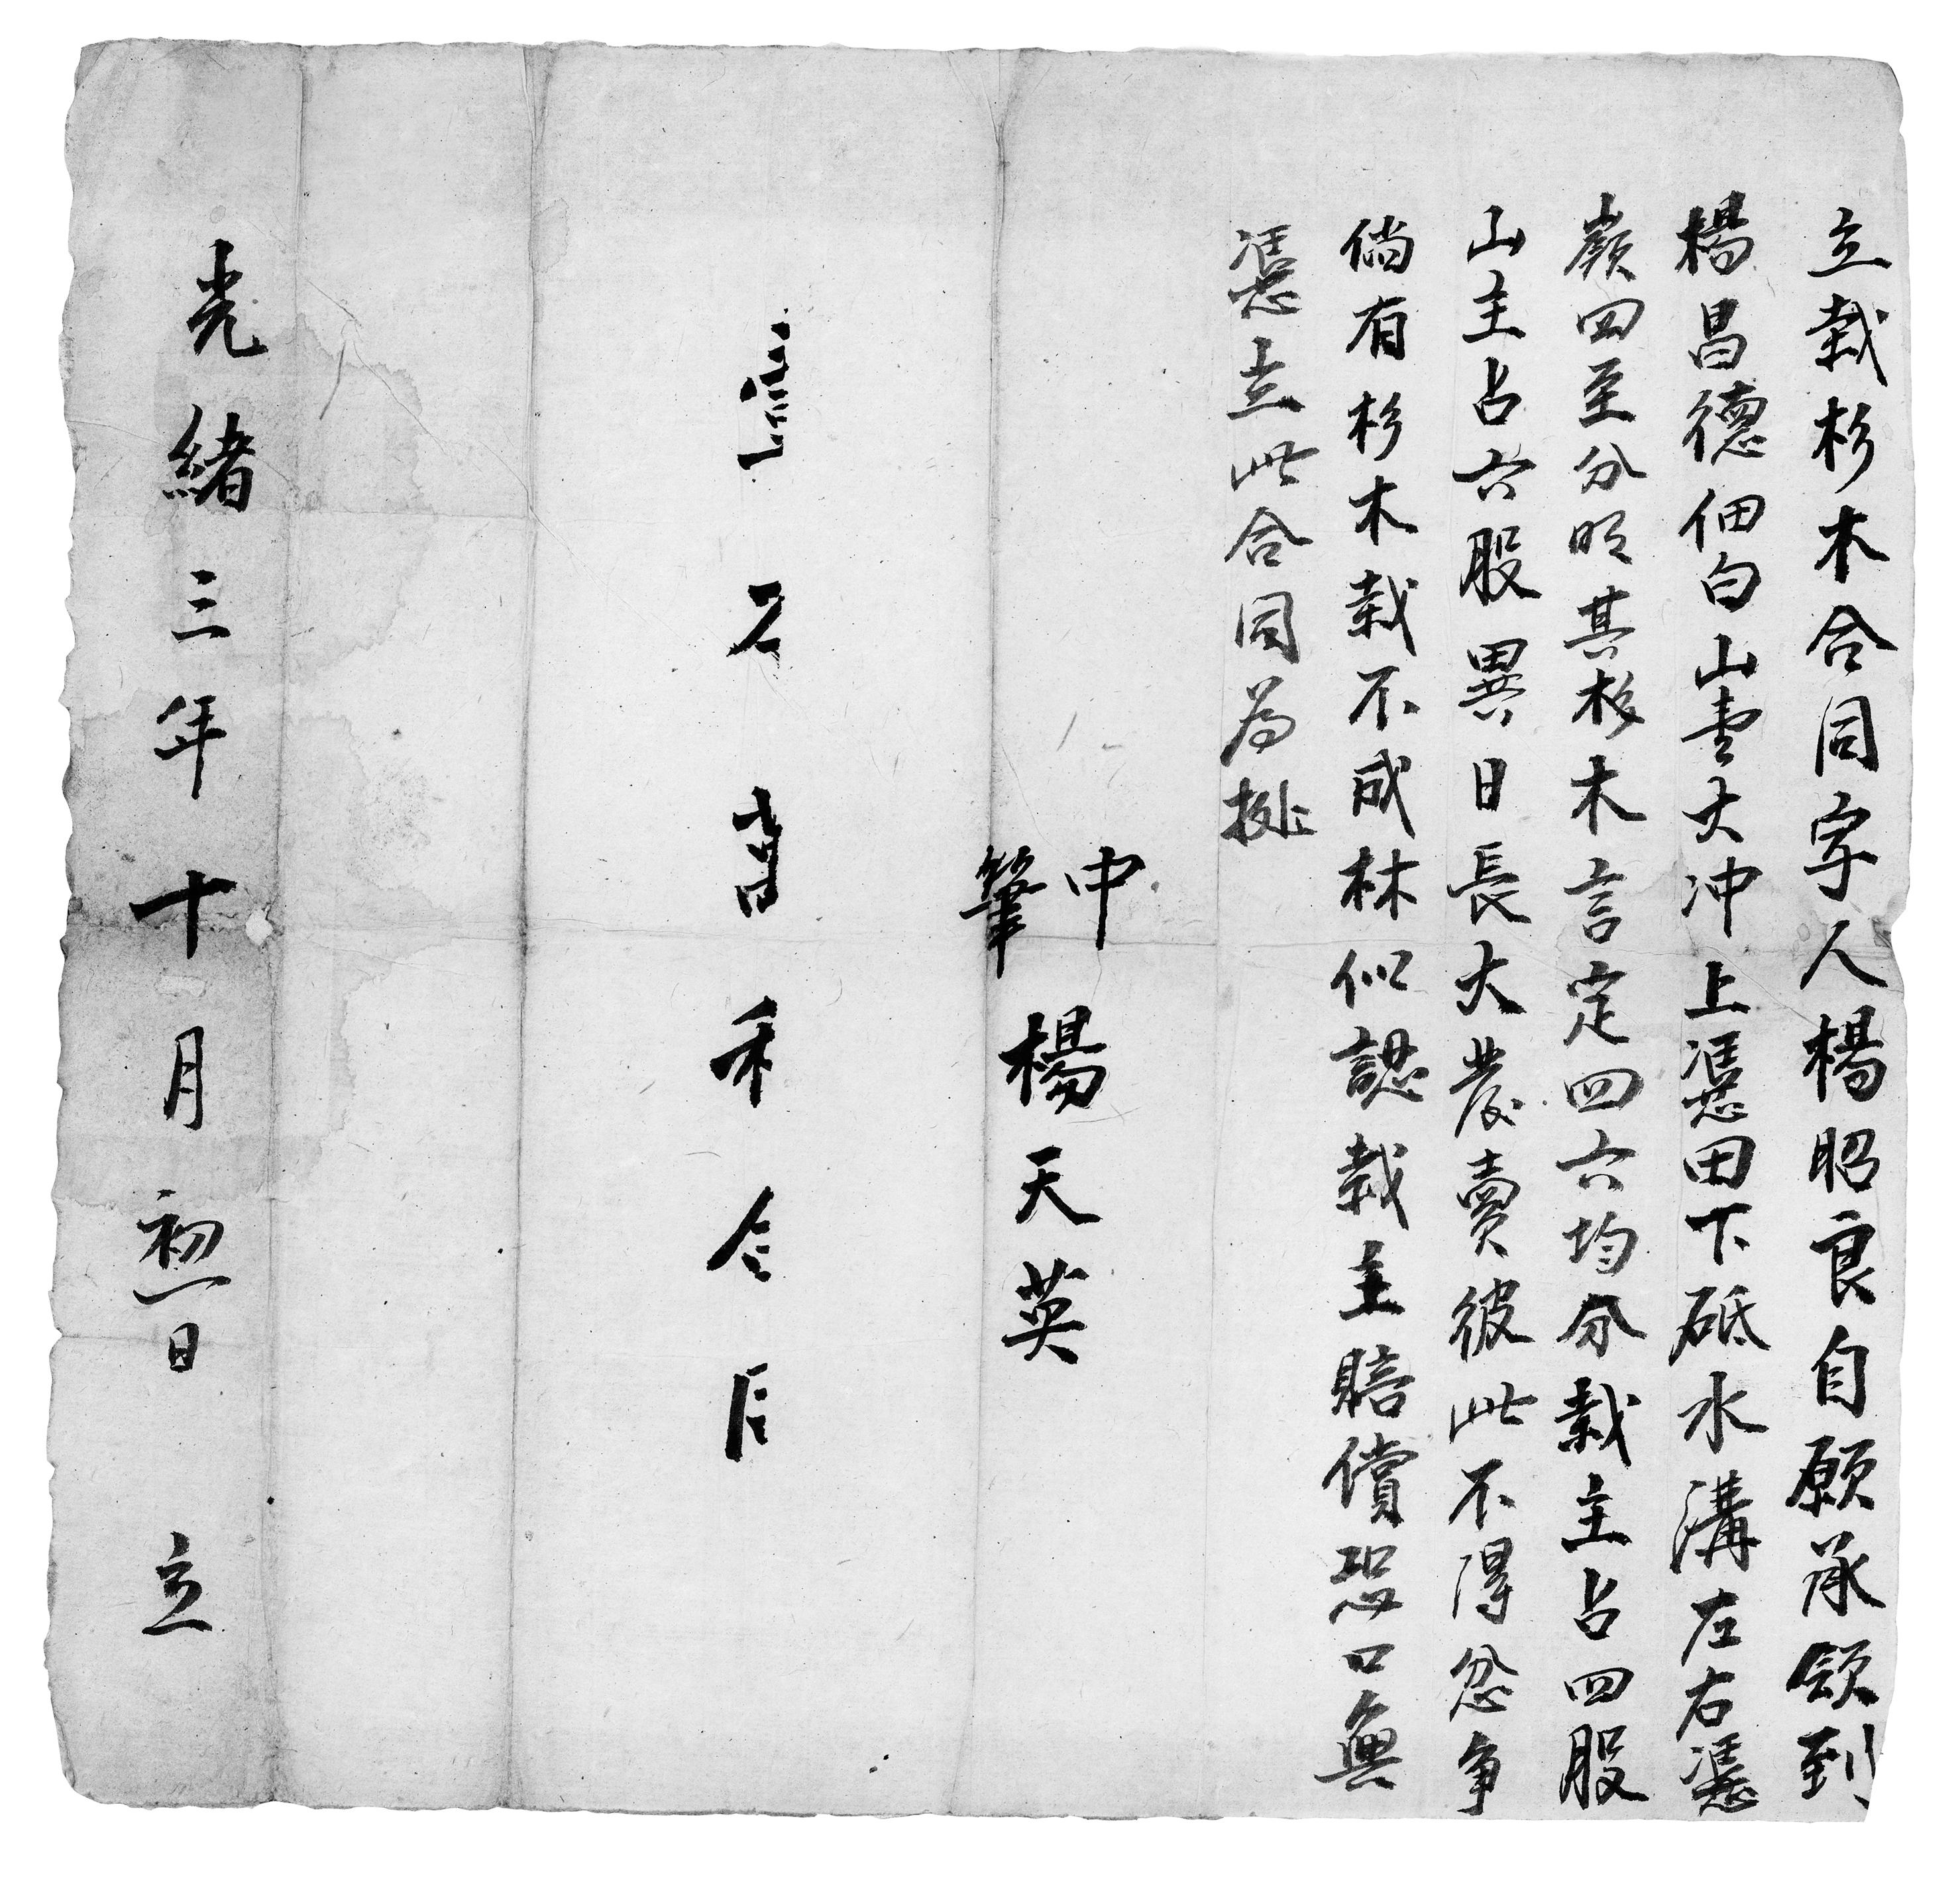 立栽杉木合同字人楊昭良自願承領到
楊昌德佃白山壹大冲上憑田下砥水溝左右憑
嶺四至分明其杉木言定四六均分栽主占四股
山主占六股異日長大發賣彼此不得忿争
倘有杉木栽不成林似認栽主賠償恐口無
憑立此合同為㨿
中
筆
楊天英
光緒三年十月初一日立